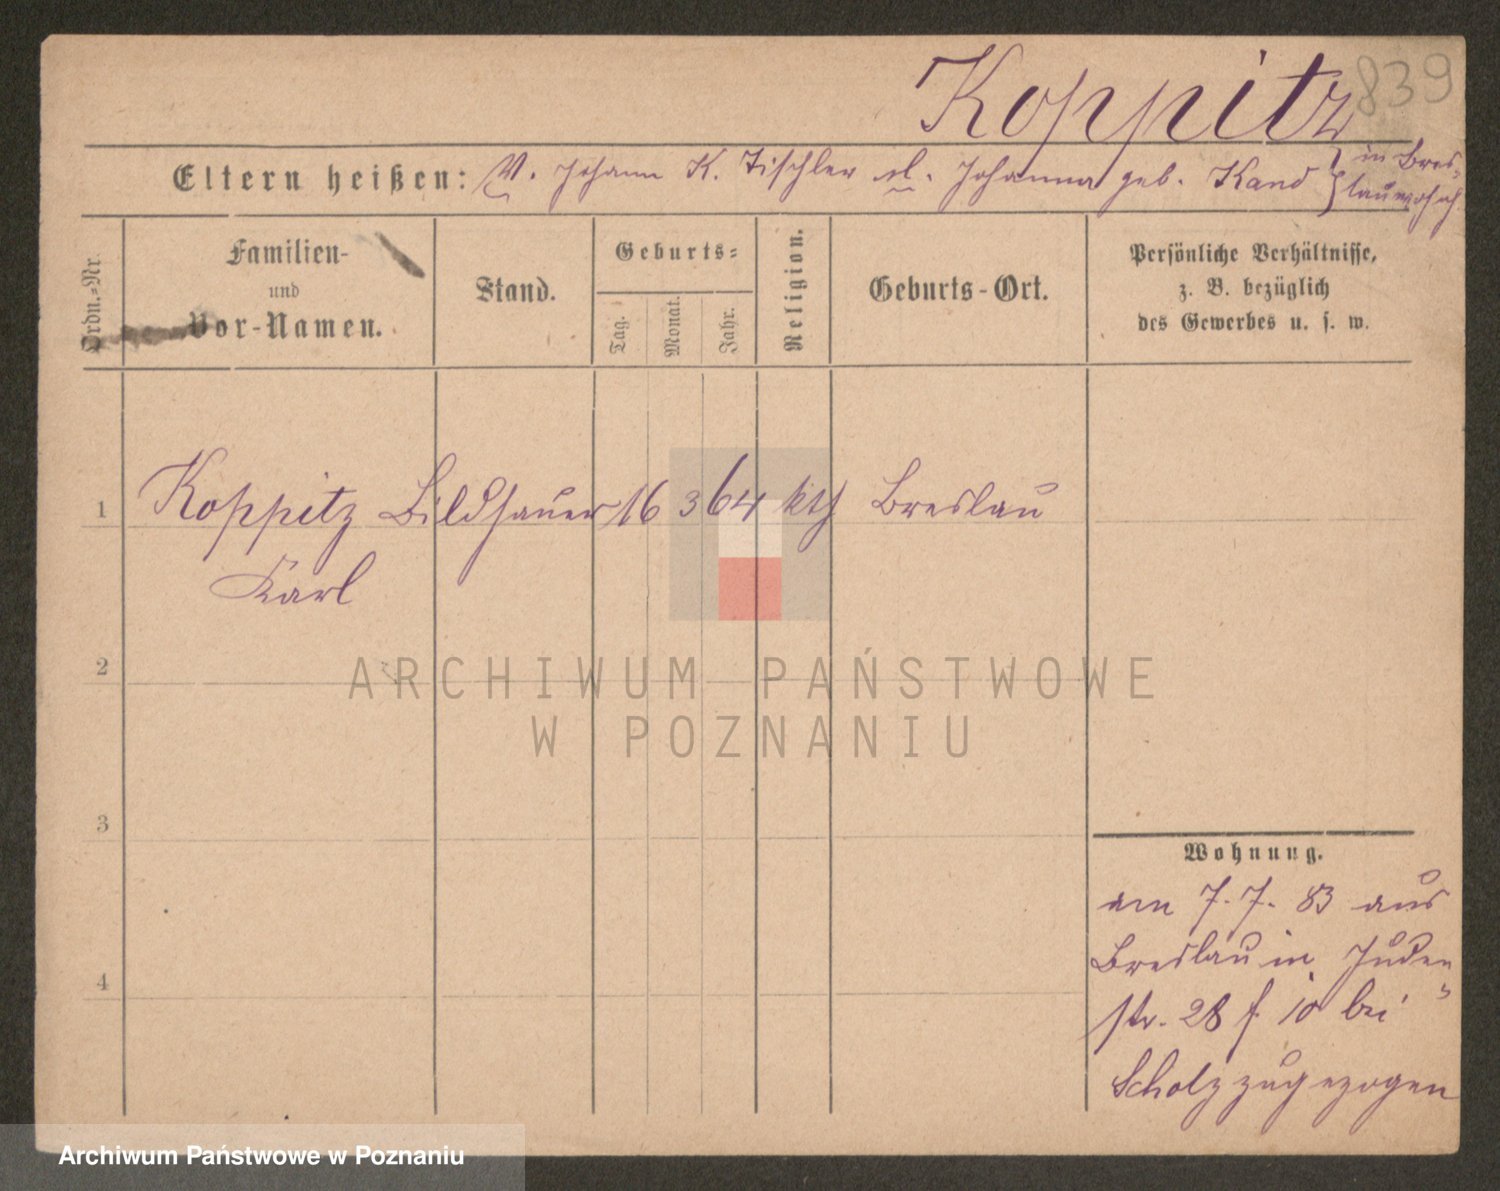 839
Koppitz
Eltern heißen: V. Johann K. Tischler M. Johanna geb. Kand } in Bres-
lau wohnh.
Ordn.-Nr.
Familien-
und
Vor-Namen.
Stand.
Geburts-
Tag.
Monat.
Jahr.
Religion.
Geburts-Ort.
Persönliche Verhältnisse,
z. B. bezüglich
des Gewerbes u. s. w.
1 Koppitz Bildhauer 16 3 64 kth Breslau
Karl
2
3
4
Wohnung.
am 7. 7. 83 aus
Breslau in Juden-
str. 28 f. 10 bei
Scholz zugezogen
ARCHIWUM PAŃSTWOWE
W POZNANIU
Archiwum Państwowe w Poznaniu